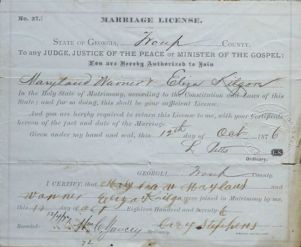 No. 37.
MARRIAGE LICENSE.
STATE OF GEORGIA, Troup COUNTY.
To any JUDGE, JUSTICE OF THE PEACE or MINISTER OF THE GOSPEL:
You are Hereby Authorized to Join
Maryland Warner & Eliza
In the Holy State of Matrimony, according to the Constitution and Laws of this
State; and for so doing, this shall be your sufficient License.
And you are hereby required to return this License to me, with your Certificate
hereon of the fact and date of the Marriage.
Given under my hand and seal, this 12th day of Oct 1876
L.S.
Ordinary.
GEORGIA, Troup County.
I CERTIFY, that
were joined in Matrimony by me
this day of Oct Eighteen Hundred and Seventy 6
Recorded Cary Stephens